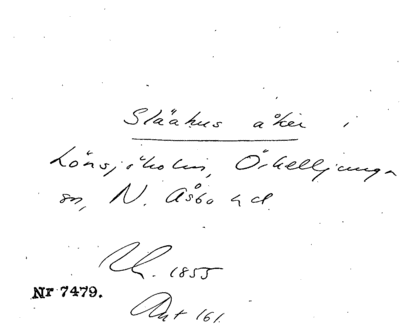 Slåahus åker i
Lönsjöholm, Örkelljunga
sn, N. Åsbo hd
Uh. 1855
Nr 7479.
Ant 161.